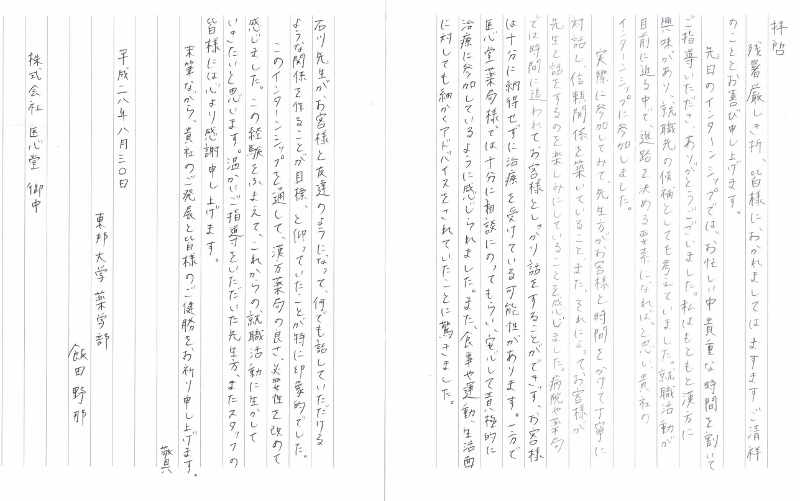 拝啓
残暑厳しき折、皆様におかれましてはますますご清祥
のこととお喜び申し上げます。
先日のインターンシップでは、お忙しい中貴重な時間を割いて
ご指導いただき、ありがとうございました。私はもともと漢方に
興味があり、就職先の候補としても考えていました。就職活動が
目前に迫る中で、進路を決める要素になれば、と思い貴社の
インターンシップに参加しました。
実際に参加してみて、先生方がお客様と時間をかけて丁寧に
対話し、信頼関係を築いていること、また、それによってお客様が
先生と話をするのを楽しみにしていることを感じました。病院や薬局
では時間に追われてお客様としっかり話をすることができず、お客様
は十分に納得せずに治療を受けている可能性があります。一方で
匡心堂薬局様では十分に相談にのってもらい、安心して積極的に
治療に参加しているように感じられました。また、食事や運動、生活面
に対しても細かくアドバイスをされていたことに驚きました。
石川先生がお客様と友達のようになって、何でも話していただける
ような関係を作ることが目標、と仰っていたことが特に印象的でした。
このインターンシップを通して、漢方薬局の良さ、必要性を改めて
感じました。この経験をふまえて、これからの就職活動に生かして
いきたいと思います。温かいご指導をいただいた先生方、またスタッフの
皆様には心より感謝申し上げます。
末筆ながら、貴社のご発展と皆様のご健勝をお祈り申し上げます。
敬具
平成二八年八月三〇日
東邦大学薬学部
飯田野那
株式会社 匡心堂 御中